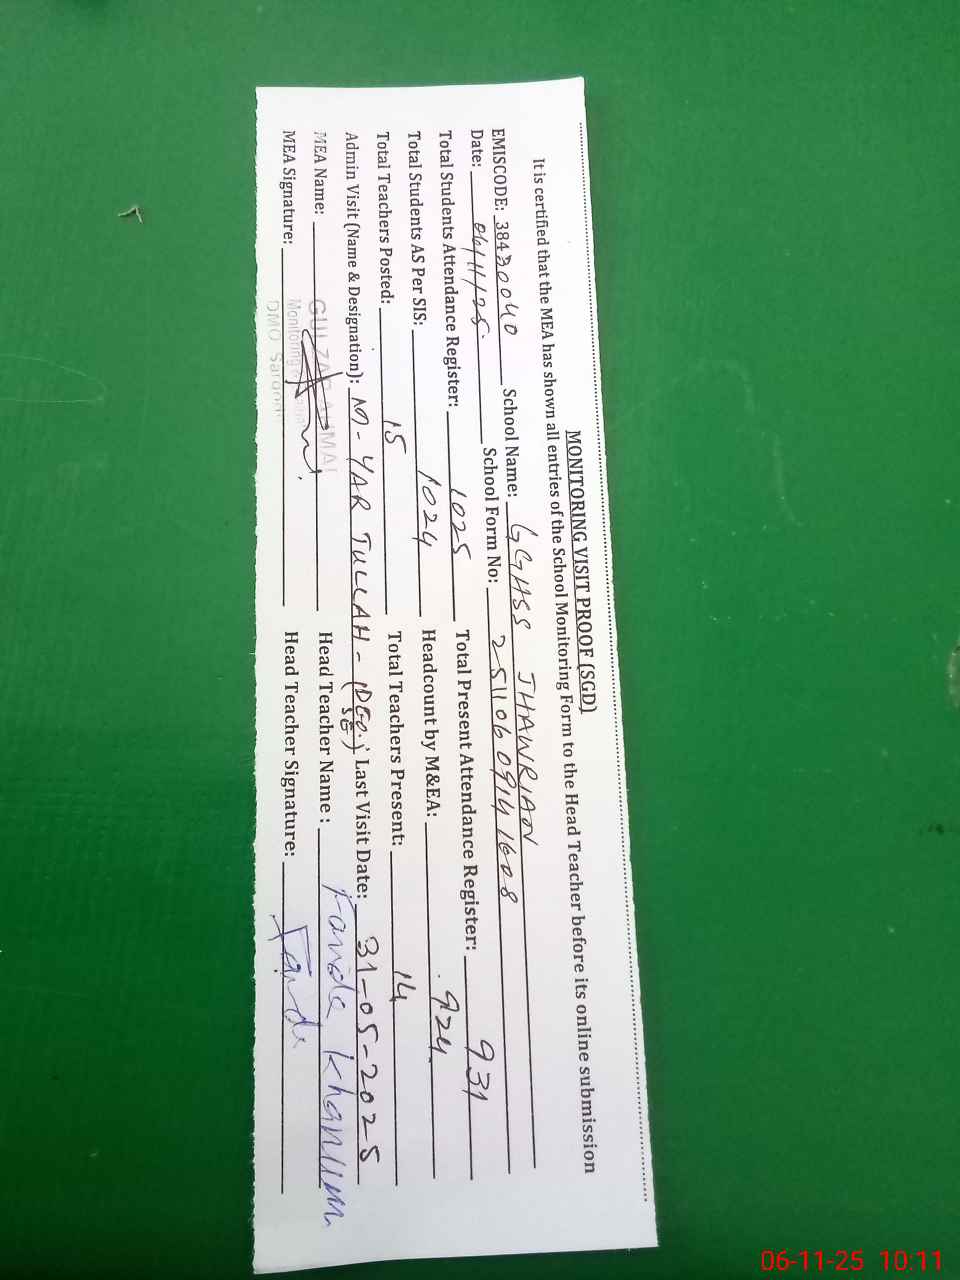 MONITORING VISIT PROOF (SGD)
It is certified that the MEA has shown all entries of the School Monitoring Form to the Head Teacher before its online submission
EMISCODE: 38430040 School Name: GGHSS JHAWRIAN
Date: 06/11/25. School Form No: 25110609141608
Total Students Attendance Register: 1025 Total Present Attendance Register: 931
Total Students AS Per SIS: 1024 Headcount by M&EA: 924
Total Teachers Posted: 15 Total Teachers Present: 14
Admin Visit (Name & Designation): M- YAR TULLAH - (DEO. SE) Last Visit Date: 31-05-2025
MEA Name: GULZAR Head Teacher Name : Khanum
MEA Signature: Monitoring Head Teacher Signature:
DMO Sargodha
06-11-25 10:11